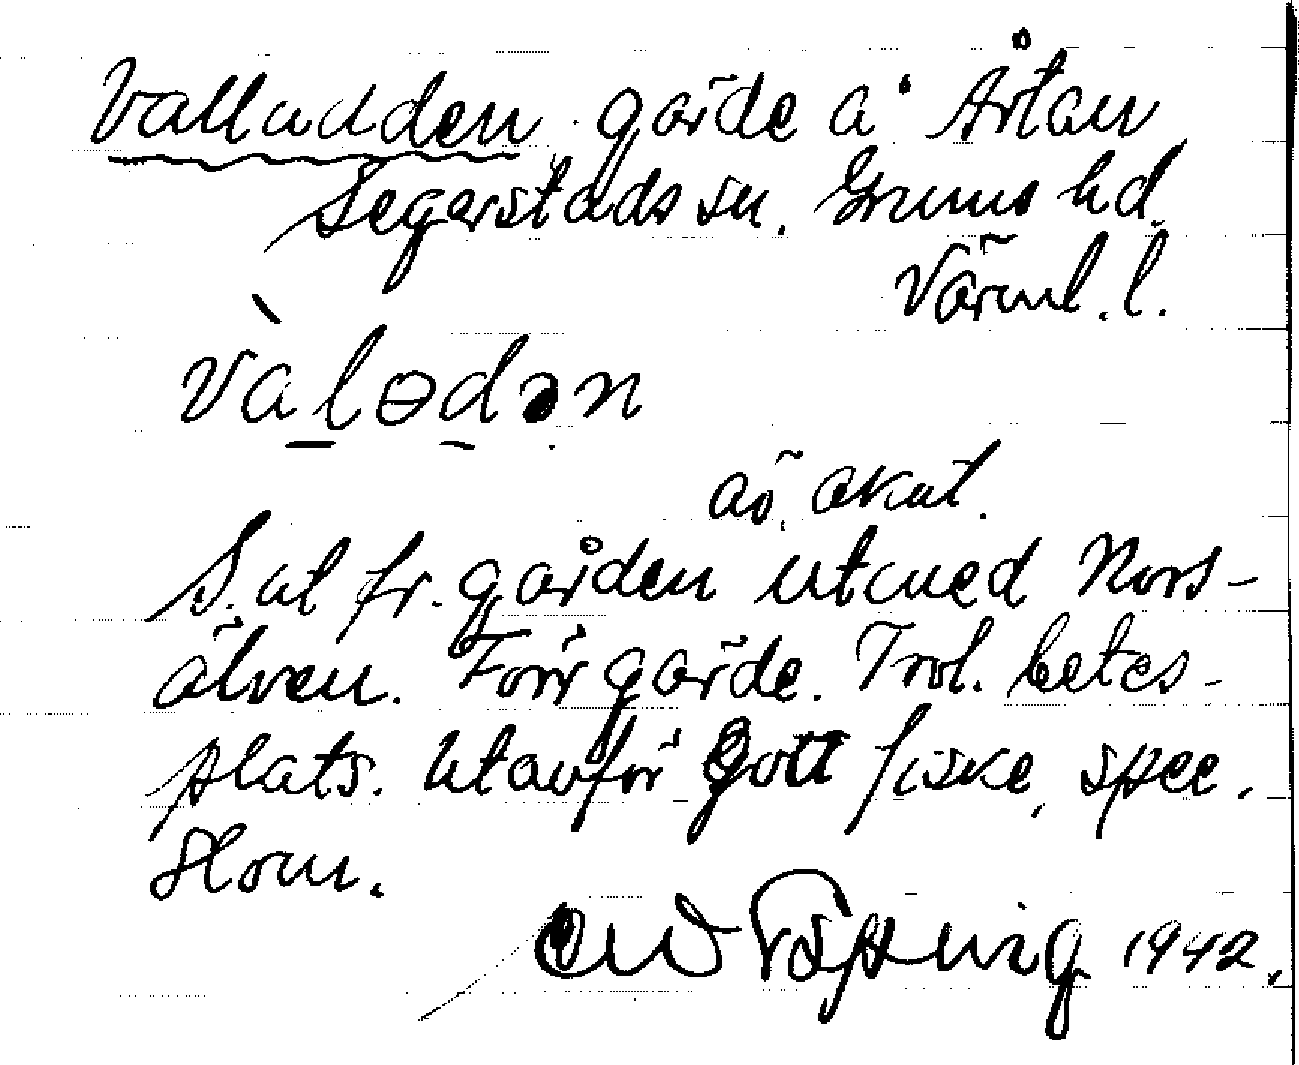 Valladden gärde å Årtan
Segerstads sn. Grums hd.
Värml. l.
vàlɵdən
äo, akut.
S. at fr. gården utmed Nors-
älven. Förr gärde. Trol. betes-
plats. Utanför gott fiske, spec.
Hom.
1942.